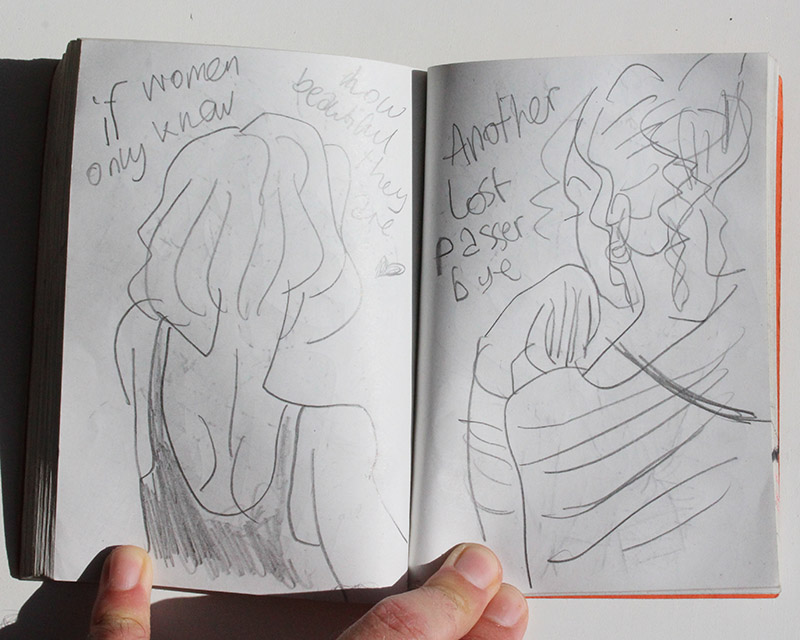 if women
only know
how
beautiful
they
are
Another
Lost
passer
bye